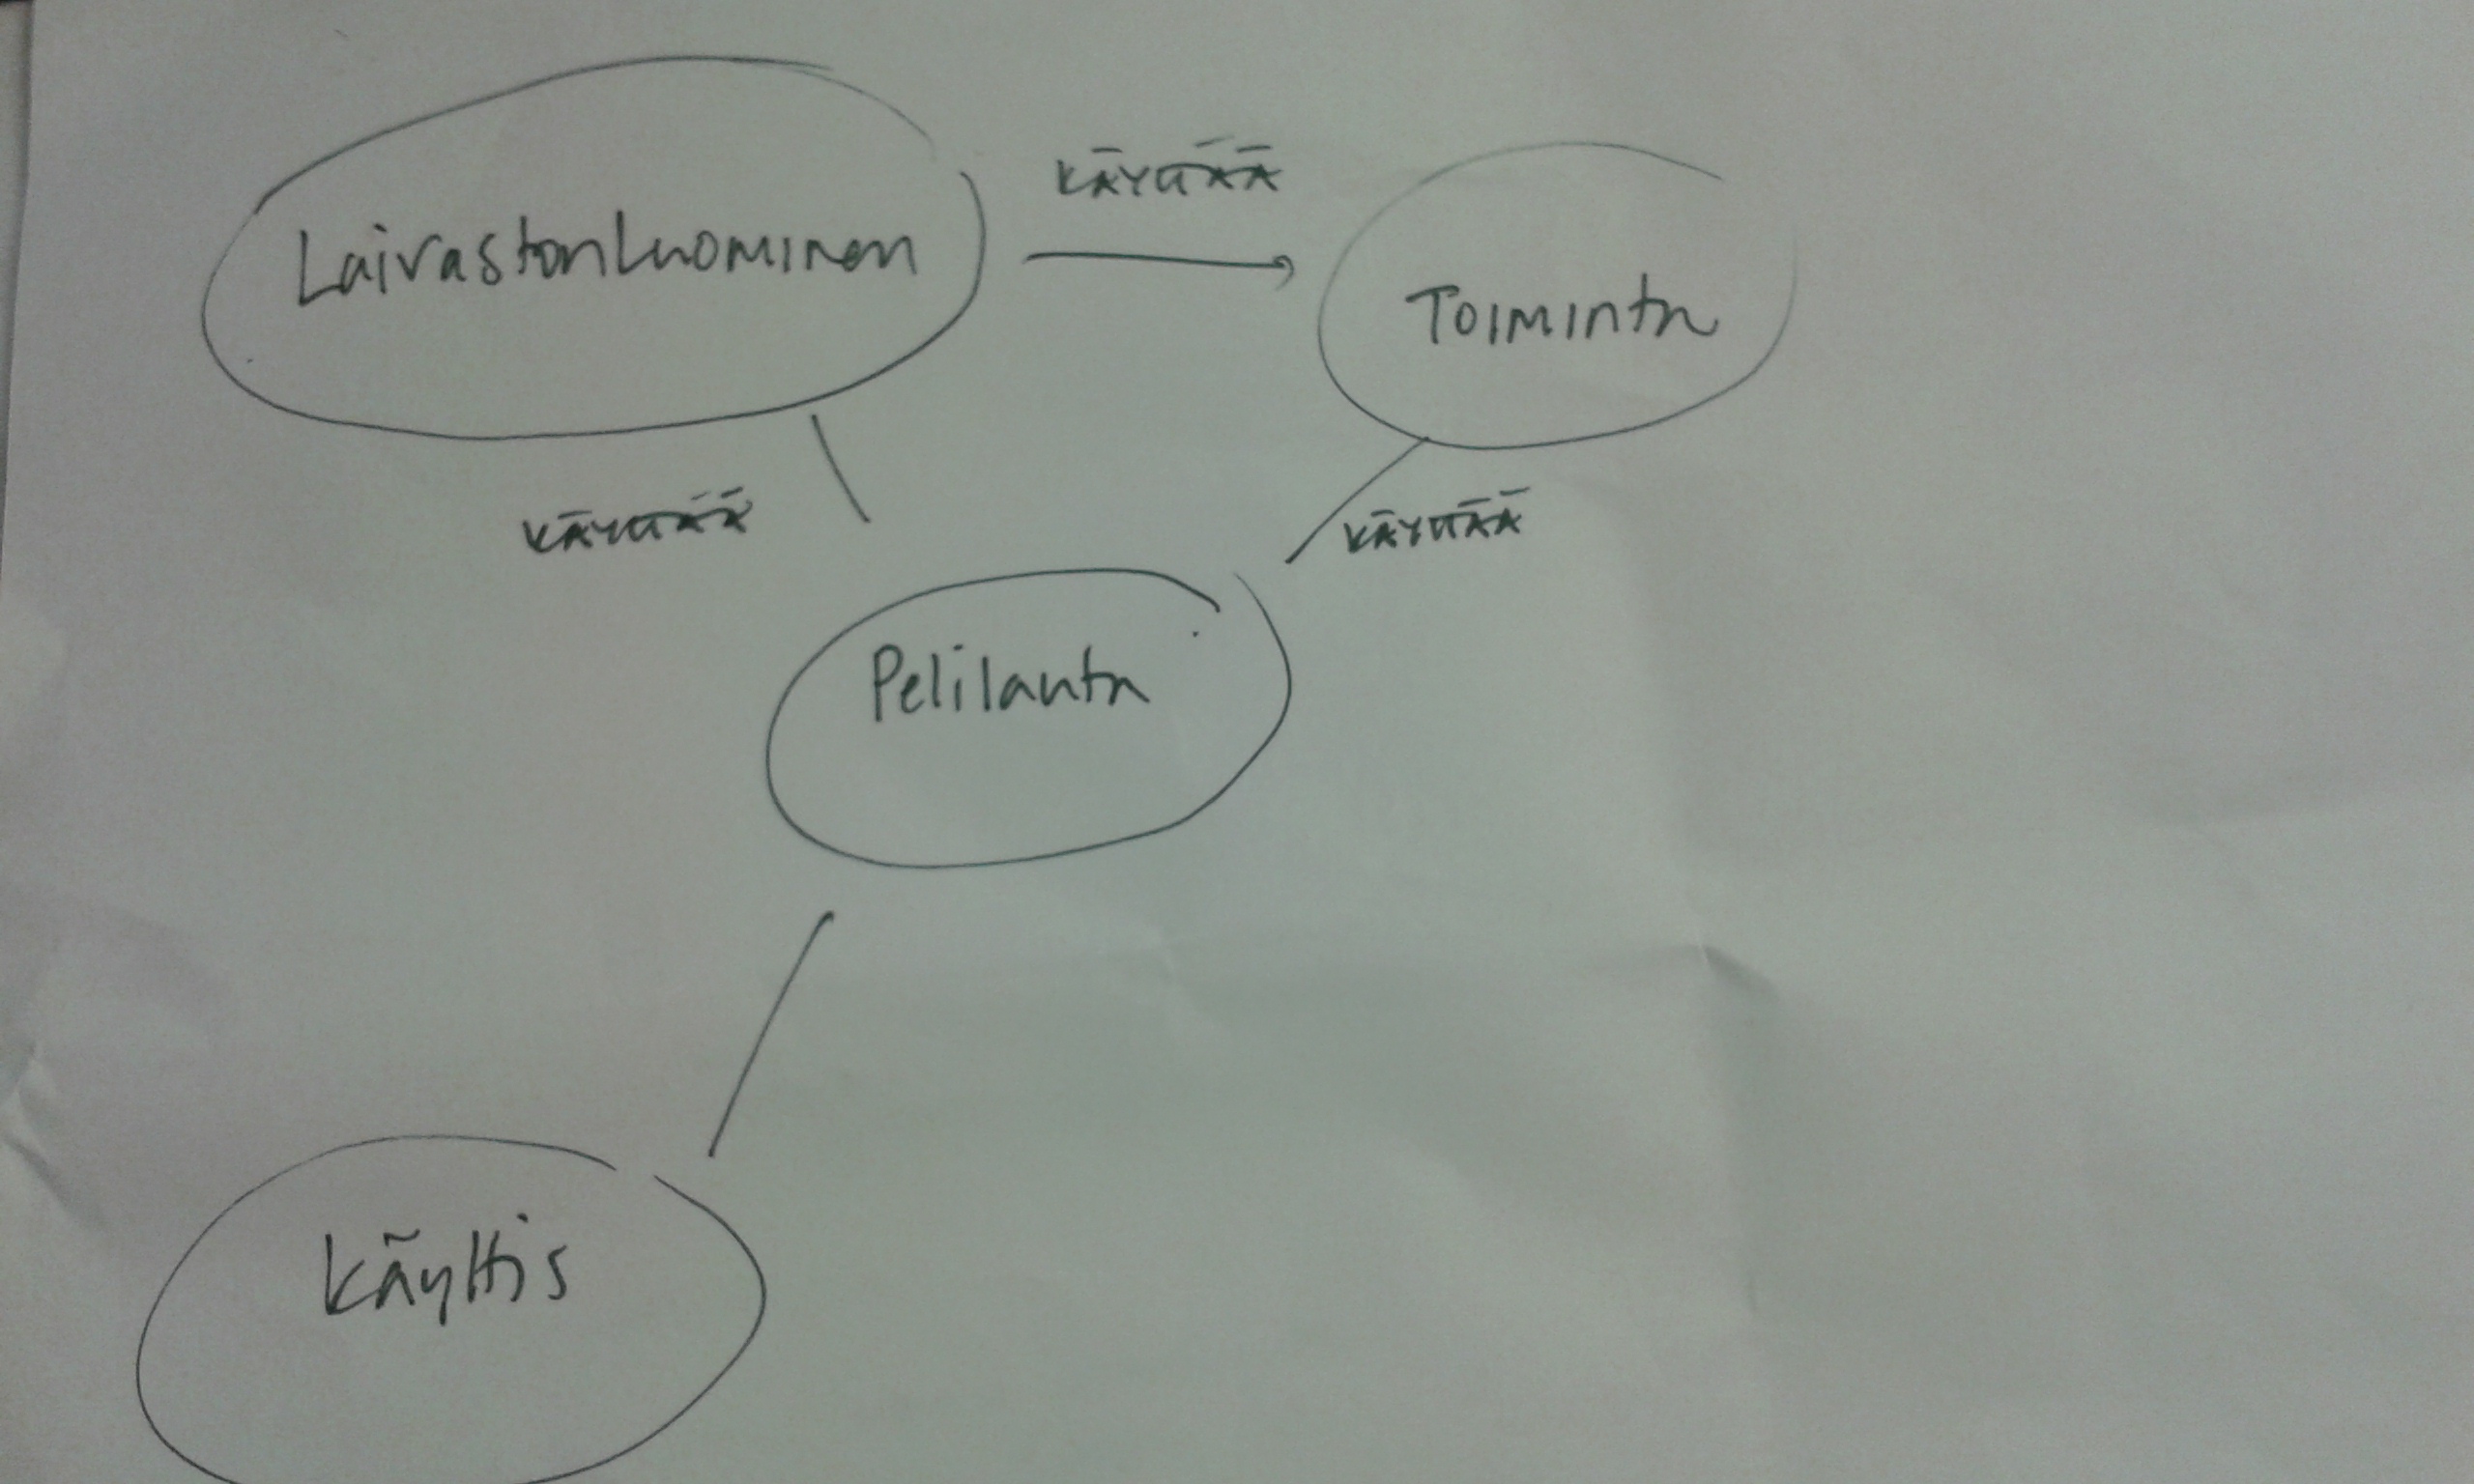 LaivastonLuominen
KÄYTTÄÄ
Toiminta
KÄYTTÄÄ
KÄYTTÄÄ
Pelilauta
Käyttis